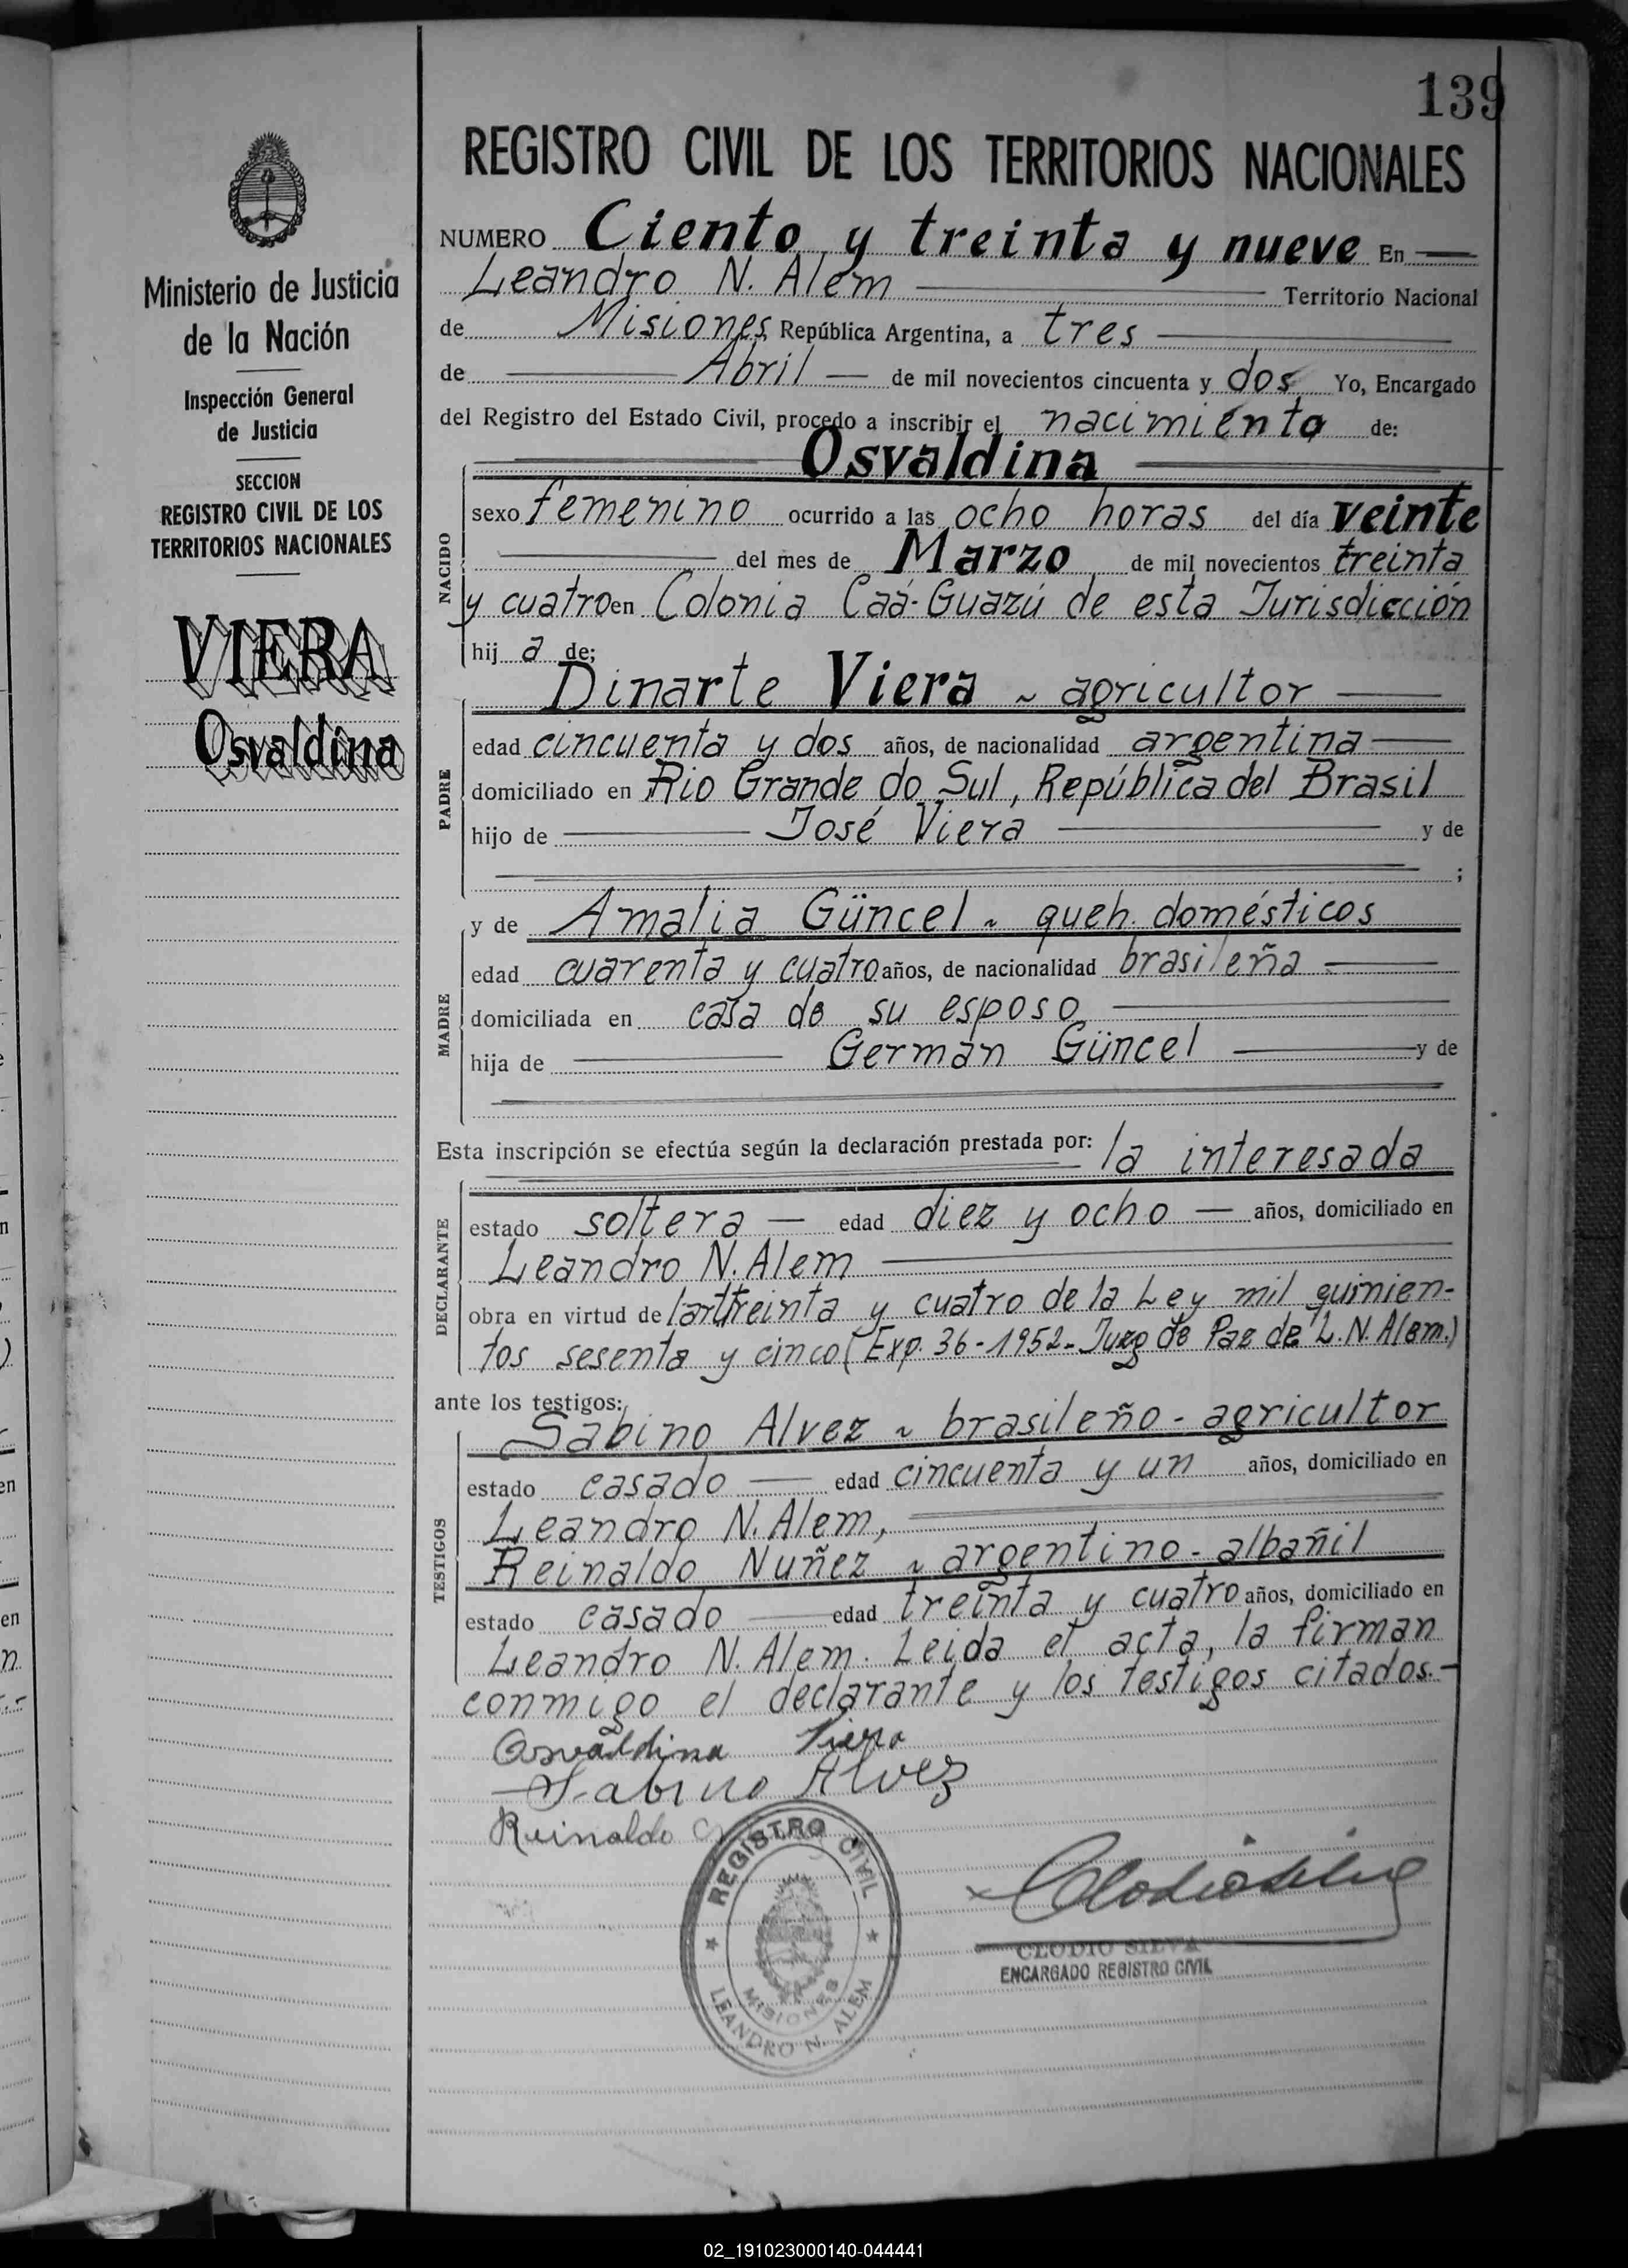 139
REGISTRO CIVIL DE LOS TERRITORIOS NACIONALES
Ministerio de Justicia
de la Nación
Inspección General
de Justicia
SECCION
REGISTRO CIVIL DE LOS
TERRITORIOS NACIONALES
VIERA
Osvaldina
NUMERO Ciento y treinta y nueve En
Leandro N. Alem Territorio Nacional
de Misiones República Argentina, a tres
de Abril de mil novecientos cincuenta y dos Yo, Encargado
del Registro del Estado Civil, procedo a inscribir el nacimiento de:
Osvaldina
NACIDO
sexo femenino ocurrido a las ocho horas del día veinte
del mes de Marzo de mil novecientos treinta
y cuatro en Colonia Caá-Guazú de esta Jurisdicción
hij a de;
Dinarte Viera ~ agricultor
PADRE
edad cincuenta y dos años, de nacionalidad argentina
domiciliado en Rio Grande do Sul, República del Brasil
hijo de José Viera y de
;
y de Amalia Güncel ~ queh. domésticos
MADRE
edad cuarenta y cuatro años, de nacionalidad brasileña
domiciliada en casa de su esposo
hija de Germán Güncel y de
Esta inscripción se efectúa según la declaración prestada por: la interesada
DECLARANTE
estado soltera edad diez y ocho años, domiciliado en
Leandro N. Alem
obra en virtud de l'art treinta y cuatro de la Ley mil quinien-
tos sesenta y cinco (Exp. 36-1952- Juzg de Paz de L. N. Alem.)
ante los testigos:
TESTIGOS
Sabino Alvez ~ brasileño - agricultor
estado casado edad cincuenta y un años, domiciliado en
Leandro N. Alem,
Reinaldo Nuñez ~ argentino - albañil
estado casado edad treinta y cuatro años, domiciliado en
Leandro N. Alem. Leida el acta, la firman
conmigo el declarante y los testigos citados.-
Osvaldina Viera
Sabino Alvez
Reinaldo
REGISTRO CIVIL
MISIONES
LEANDRO N. ALEM
CLODIO SILVA
ENCARGADO REGISTRO CIVIL
02_191023000140-044441